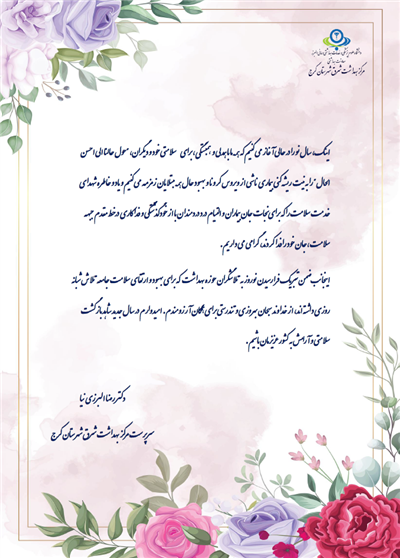 دانشگاه علوم پزشکی و خدمات بهداشتی درمانی البرز
معاونت بهداشتی
مرکز بهداشت شرق شهرستان کرج
اینک، سال نو را در حالی آغاز می کنیم که همه ما با همدلی و همبستگی، برای سلامتی خود و دیگران، حول حالنا الی احسن
الحال را به نیت ریشه کنی بیماری ناشی از ویروس کرونا و بهبود حال همه مبتلایان زمزمه می کنیم و یاد و خاطره شهدای
خدمت سلامت را که برای نجات جان بیماران و التیام درد دردمندان با از خودگذشتگی و فداکاری در خط مقدم جبهه
سلامت، جان خود را فدا کردند، گرامی می داریم.
اینجانب ضمن تبریک فرارسیدن نوروز به تلاشگران حوزه بهداشت که برای بهبود و ارتقای سلامت جامعه تلاش شبانه
روزی داشته اند، از خداوند سبحان بهروزی و تندرستی برای همگان آرزومندم. امیدوارم در سال جدید شاهد بازگشت
سلامتی و آرامش به کشور عزیزمان باشیم.
دکتر رضا البرزی نیا
سرپرست مرکز بهداشت شرق شهرستان کرج